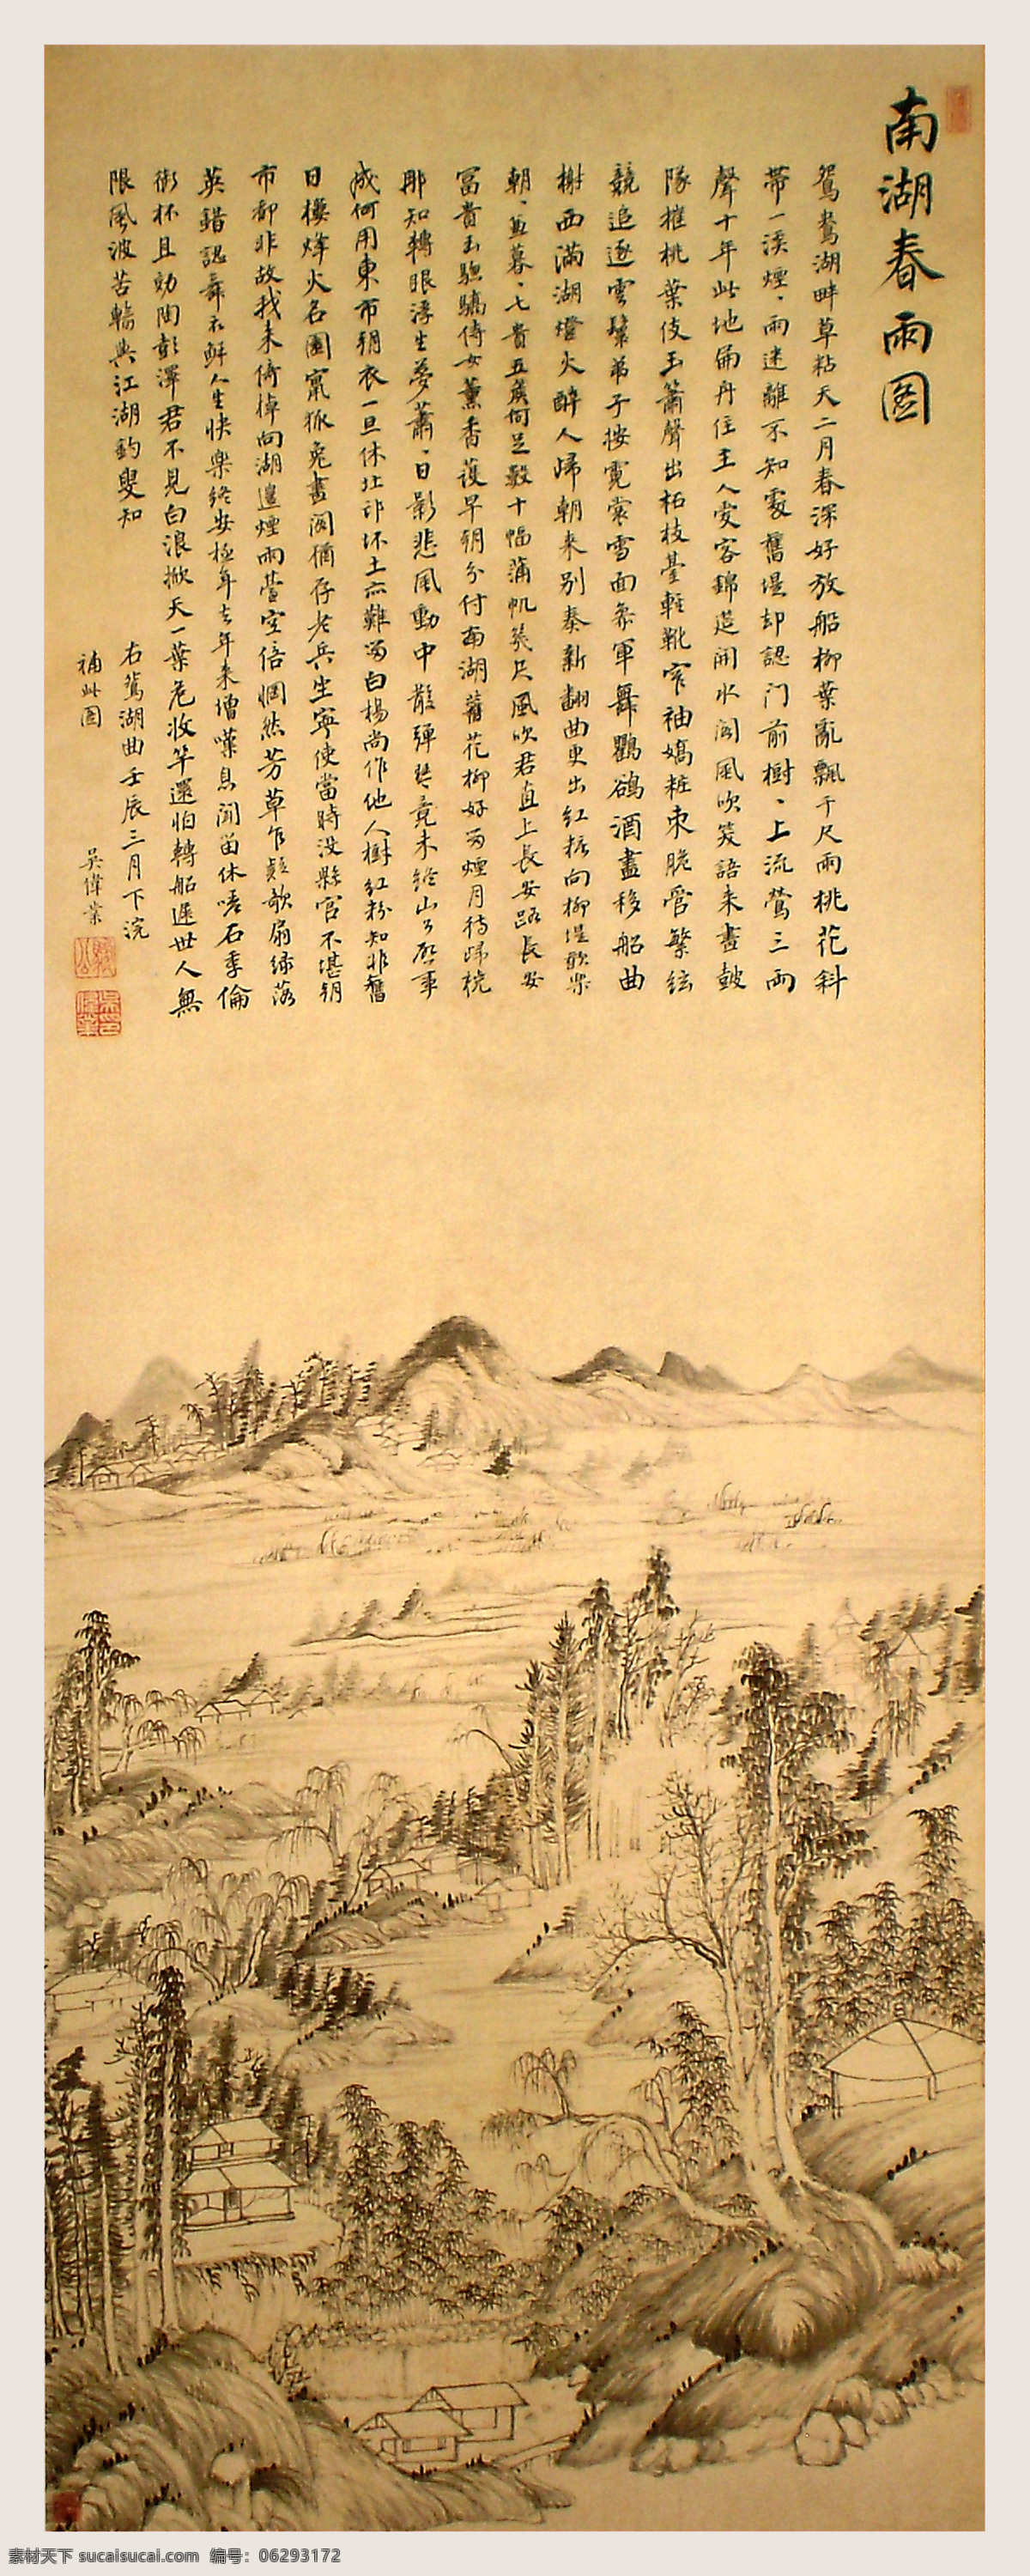 南湖春雨圖
鴛鴦湖畔草粘天二月春深好放船柳葉亂飄千尺雨桃花斜
帶一溪煙、雨迷離不知處舊堤却認門前樹、上流鶯三兩
聲十年此地扁舟住主人愛客錦筵開水閣風吹笑語來畫鼓
隊催桃葉伎玉簫聲出柘枝臺輕靴窄袖嬌粧束脆管繁絃
競追逐雲鬟弟子按霓裳雪面參軍舞鸜鵒酒盡移船曲
榭西滿湖燈火醉人歸朝來別奏新翻曲更出紅粧向柳堤歌樂
朝、兼暮、七貴五侯何足數十幅蒲帆幾尺風吹君直上長安路長安
富貴玉驄驕侍女薰香護早朝分付南湖舊花柳好留煙月待歸橈
那知轉眼浮生夢蕭、日影悲風動中散彈琴竟未終山公啓事
成何用東市朝衣一旦休北邙坏土亦難留白楊尚作他人樹紅粉知非舊
日樓烽火名園竄狐兔畫閣猶存老兵寧使當時没縣官不堪朝
市都非故我來倚棹向湖邊煙雨臺空倍惘然芳草乍疑歌扇綠落
英錯認舞衣鮮人生快樂終安極年去年來增嘆息聞笛休嗟石季倫
銜杯且効陶彭澤君不見白浪掀天一葉危收竿還怕轉船遲世人無
限風波苦輸與江湖釣叟知
右鴛湖曲壬辰三月下浣
補此圖
吳偉業
素材天下 sucaisucai.com 编号：06293172